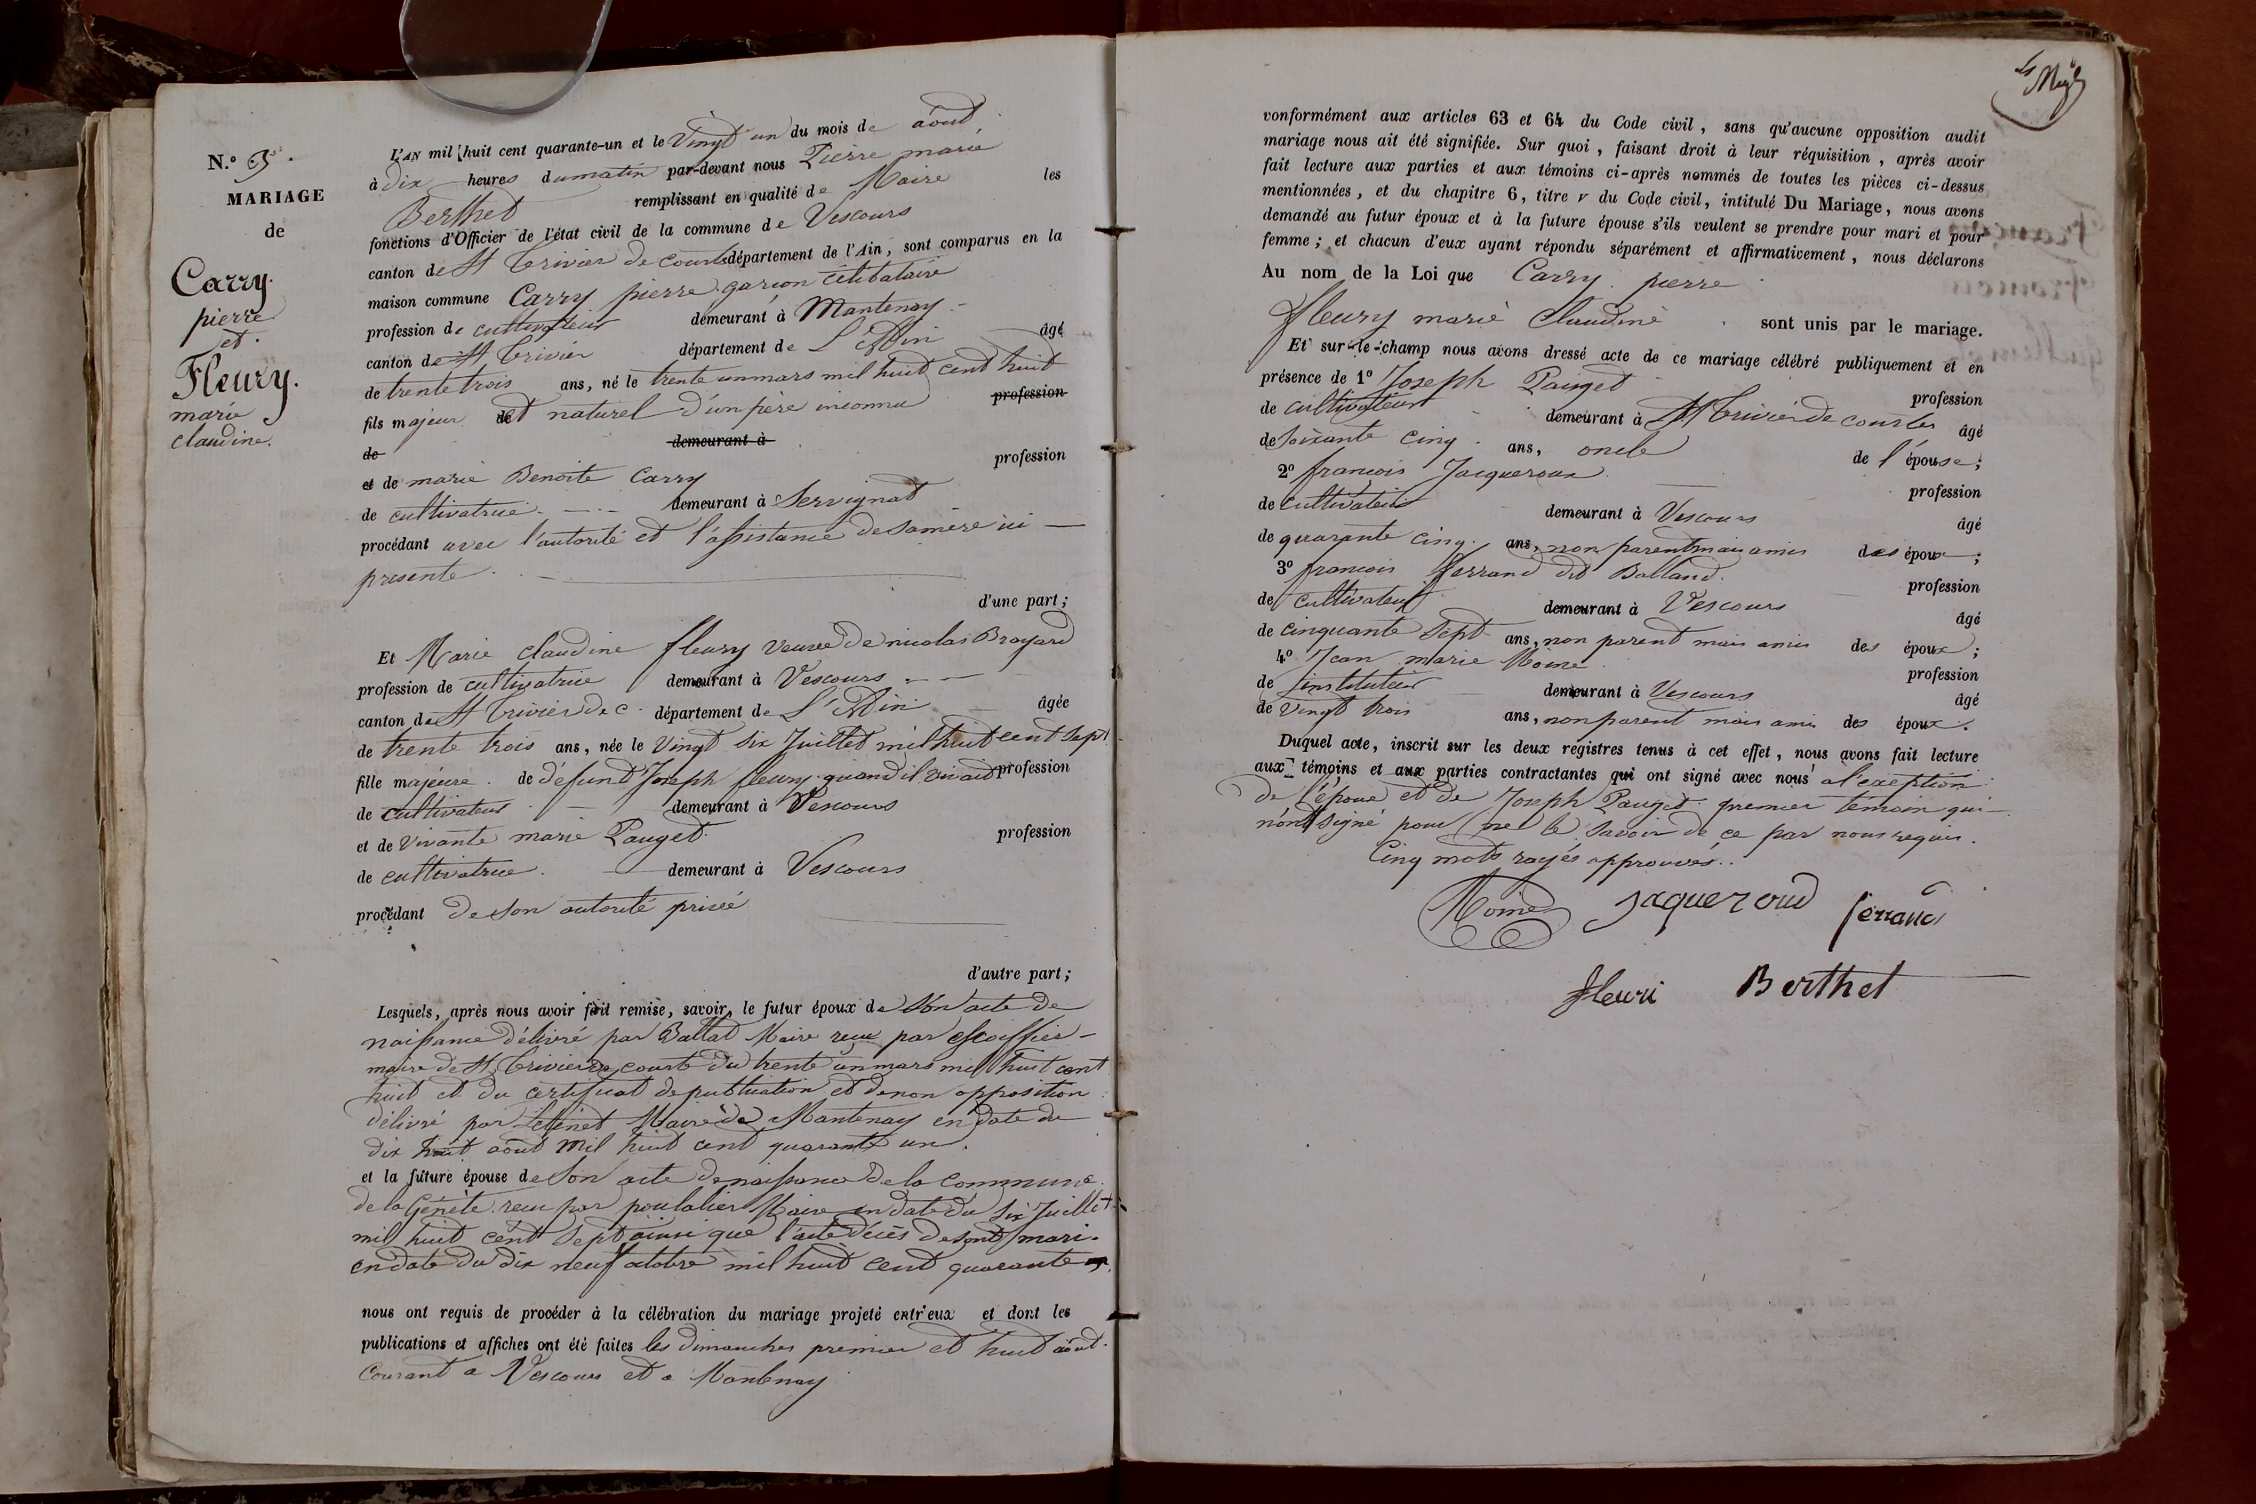 N.º 5
MARIAGE
de
Carry.
pierre
et.
Fleury.
marie
claudine.
L'AN mil huit cent quarante-un et le Vingt un du mois de août
à dix heures du matin par-devant nous Pierre marie
Berthet remplissant en qualité de Maire les
fonctions d'Officier de l'état civil de la commune de Vescours
canton de St Trivier de courtes département de l'Ain, sont comparus en la
maison commune Carry pierre garcon célibataire
profession de cultivateur demeurant à Mantenay -
canton de St Trivier département de L'Ain âgé
de trente trois ans, né le trente un mars mil huit cent huit
fils majeur et naturel d'un père inconnu profession
de demeurant à
et de marie Benoite Carry profession
de cultivatrice. demeurant à Servignat
procédant avec l'autorité et l'assistance de sa mère ici
presente.
d'une part;
Et Marie claudine fleury veuve de nicolas Broyard
profession de cultivatrice demeurant à Vescours
canton de St Trivier de C. département de L'Ain âgée
de trente trois ans, née le Vingt six Juillet mil huit cent sept
fille majeure. de défunt Joseph fleury quand il vivait profession
de cultivateur demeurant à Vescours
et de vivante marie Pauget. profession
de cultivatrice. demeurant à Vescours
procédant de son autorité privée
d'autre part;
Lesquels, après nous avoir fait remise, savoir, le futur époux de Son acte de
naissance délivré par Ballat Maire reçu par escoffier
maire de St Trivier de courte du trente un mars mil huit cent
huit et du certificat de publication et de non opposition
délivré par Maire de Mantenay en date du
dix huit août mil huit cent quarante un.
et la future épouse de Son acte de naissance de la commune
de la Génète reçu par poulalier Maire en date du six Juillet
mil huit cent sept ainsi que l'acte décès de son mari.
en date du dix neuf octobre mil huit cent quarante
nous ont requis de procéder à la célébration du mariage projeté entr'eux et dont les
publications et affiches ont été faites les dimanches premier et huit août.
Courant a Vescours et a Mantenay
conformément aux articles 63 et 64 du Code civil, sans qu'aucune opposition audit
mariage nous ait été signifiée. Sur quoi, faisant droit à leur réquisition, après avoir
fait lecture aux parties et aux témoins ci-après nommés de toutes les pièces ci-dessus
mentionnées, et du chapitre 6, titre v du Code civil, intitulé Du Mariage, nous avons
demandé au futur époux et à la future épouse s'ils veulent se prendre pour mari et pour
femme; et chacun d'eux ayant répondu séparément et affirmativement, nous déclarons
Au nom de la Loi que Carry. pierre
fleury marie Claudine sont unis par le mariage.
Et sur-le-champ nous avons dressé acte de ce mariage célébré publiquement et en
présence de 1º Joseph Pauget profession
de cultivateur demeurant à St Trivier de courtes âgé
de soixante cinq. ans, oncle de l'épouse;
2º francois Jacqueroux profession
de cultivateur demeurant à Vescours âgé
de quarante cinq. ans, non parent mais amis des époux;
3º francois ferrand dit Balland. profession
de cultivateur demeurant à Vescours âgé
de cinquante sept ans, non parent mais amis des époux;
4º Jean marie Moine profession
de instituteur demeurant à Vescours âgé
de vingt trois ans, non parent mais ami des époux.
Duquel acte, inscrit sur les deux registres tenus à cet effet, nous avons fait lecture
aux témoins et aux parties contractantes qui ont signé avec nous a l'exception
de l'épouse et de Joseph Pauget premier temoin qui
n'ont signé pour ne le savoir de ce par nous requis.
Cinq mots rayés approuvés.
Moine jaqueroud ferrand
fleuri Berthet